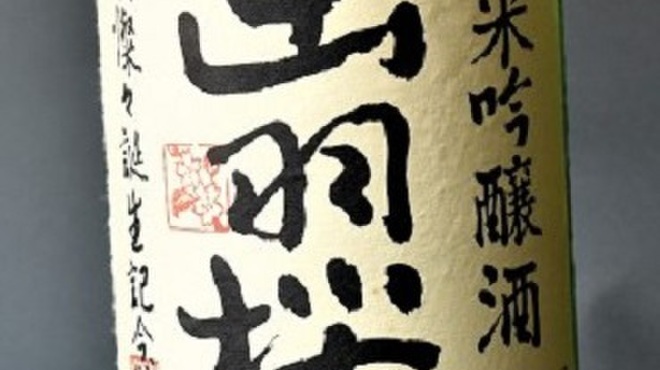 米吟醸酒
出羽桜
燦々誕生記念